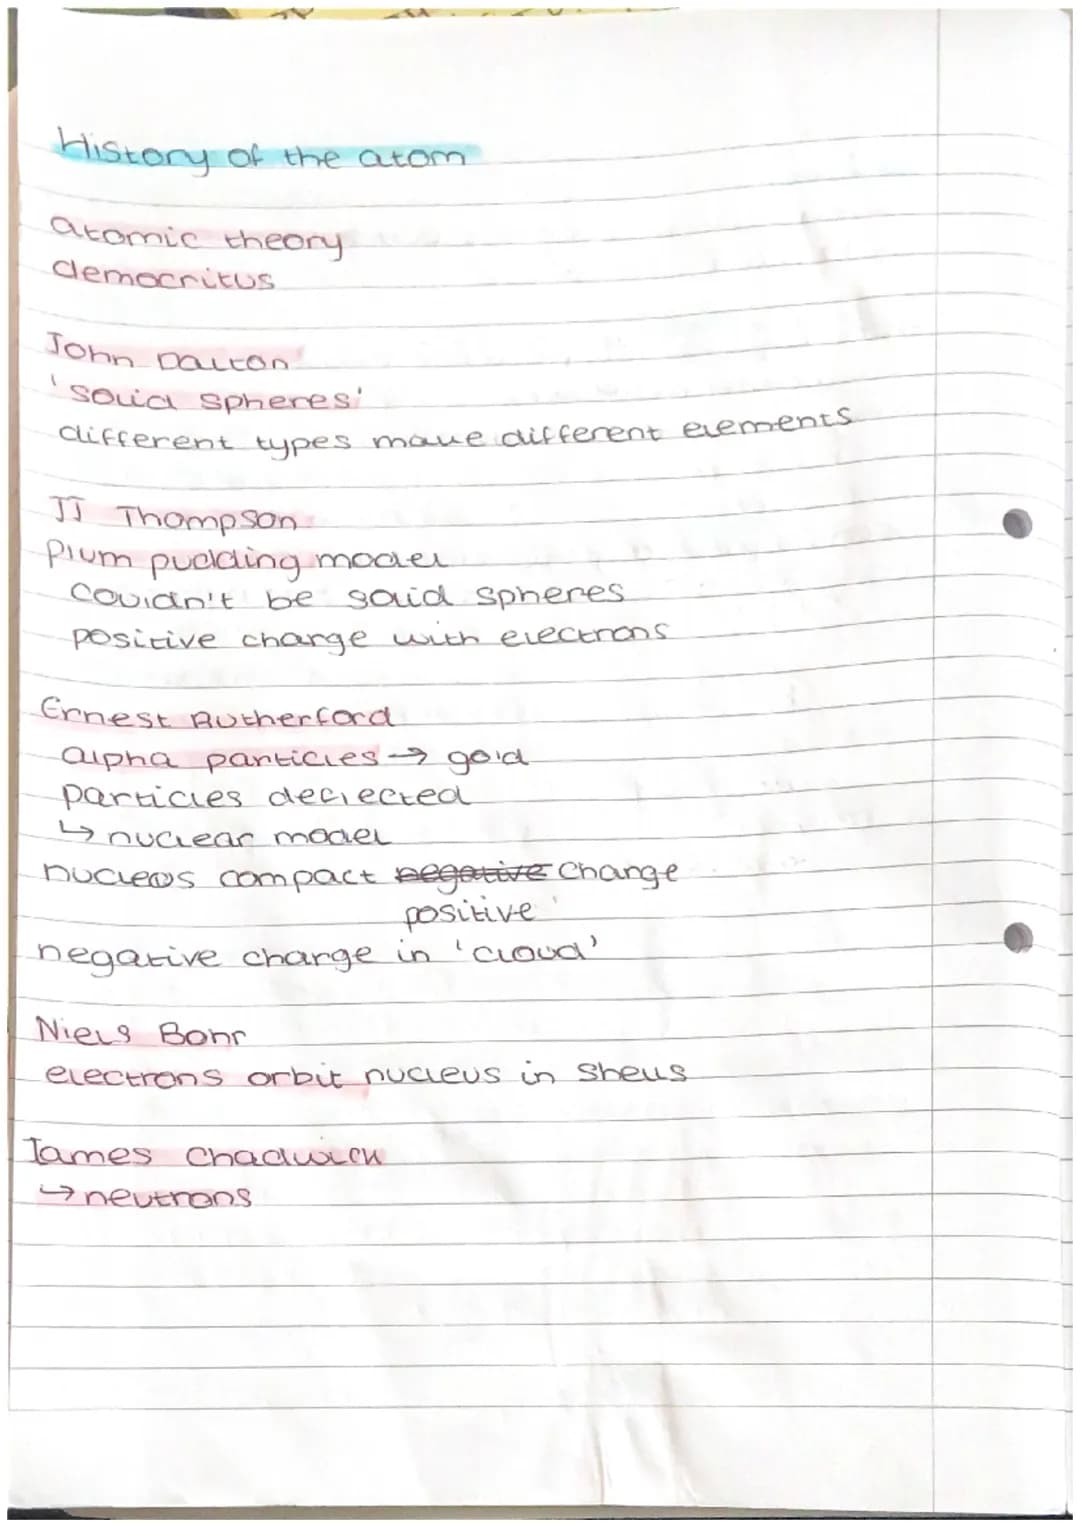 History of the atom
atomic theory
democritus
John Dalton
'solid spheres'
different types make different elements
JJ Thompson
Plum pudding model
couldn't be solid spheres
positive charge with electrons
Ernest Rutherford
alpha particles → gold
particles deflected
↳ nuclear model
nucleus compact negative charge
positive
negative charge in 'cloud'
Niels Bohr
electrons orbit nucleus in shells
James Chadwick
→ neutrons